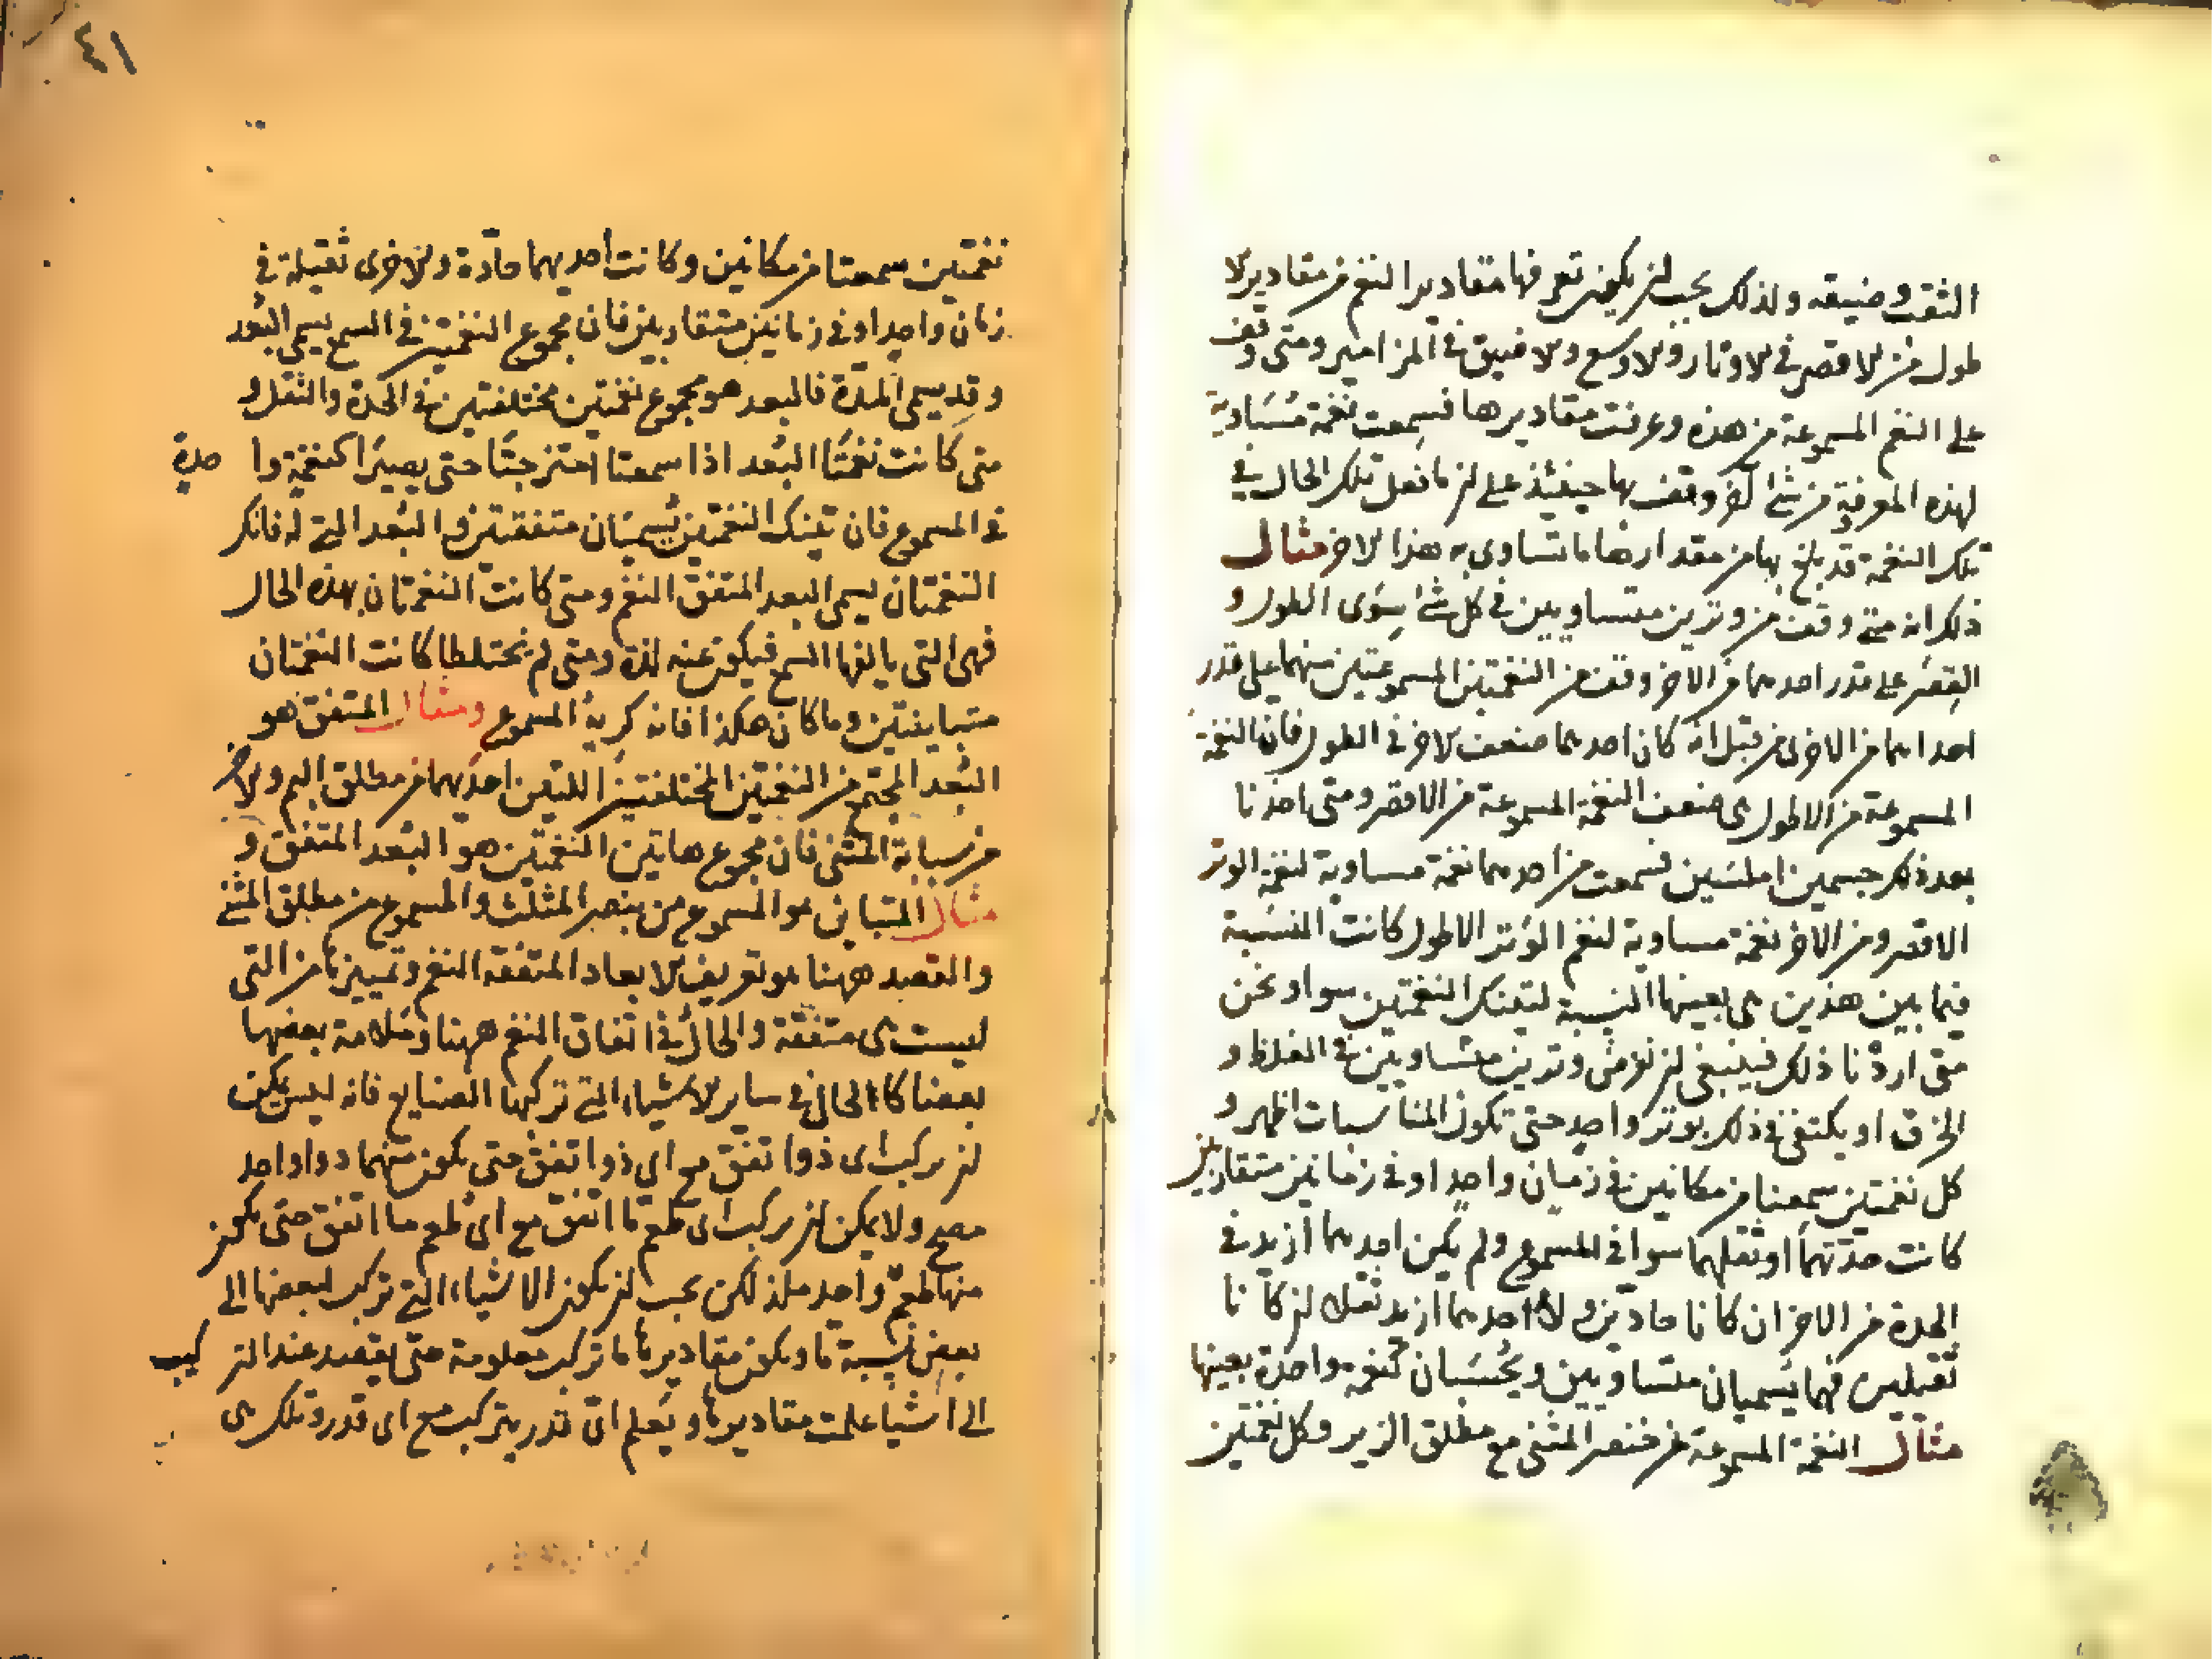 الثقب وضيقه ولذلك يجب لن يكون تعرفنا مقادير النغم من مقادير الا
طول من الاقصر في الاوتار والاوسع والاضيق في المزامير ومتى وقف
على النغم المسموعة من هذه وعرفت مقاديرها فسمعت نغمة مساوية
لهذه المعرفة من شئ آخر وقف بها حينئذ على لن ما فعل تلك الحال في
تلك النغمة قد بلغ بها من مقدارها ما تساوى به هذا الاخر مثال
ذلك انه متى وقف من وترين متساويين في كل شئ سوى الطول و
القصر على قدر احدهما من الاخر وقف من النغمتين المسموعتين منهما على قدر
احداهما من الاخرى من قبل انه كان احدهما ضعف الاخر في الطول فان النغمة
المسموعة من الاطول هى ضعف النغمة المسموعة من الاقصر ومتى اخذنا
بعد ذلك جسمين املسين فسمعت من احدهما نغمة مساوية لنغمة الوتر
الاقصر ومن الاخر نغمة مساوية لنغم الوتر الاطول كانت النسبة
فيما بين هذين هى بعينها النسبة لتينك النغمتين سوا ونحن
متى اردنا ذلك فينبغى لن نفرض وترين متساويين في الغلظ و
الخرق او يكتفى في ذلك بوتر واحد حتى تكون المناسبات اظهر و
كل نغمتين سمعنا من مكانين في زمان واحد او في زمانين متقاربين
كانت حدتهما او ثقلهما سوا في المسموع ولم يكن احدهما ازيد في
الحدة من الاخر ان كانا حادين ولا احدهما ازيد ثقلا لن كانا
ثقيلين فهما يسميان متساويين ويحسبان كنغمة واحدة بعينها
مثال النغمة المسموعة من خنصر المثنى مع مطلق الزير وكل نغمتين
٤١
نغمتين سمعتا من مكانين وكانت احديهما حادة والاخرى ثقيلة في
زمان واحد او في زمانين متقاربين فان مجموع النغمتين في السمع يسمى البعد
وقد يسمى المدة فالبعد هو مجموع نغمتين مختلفتين في الحدة والثقل و
متى كانت نغمتا البعد اذا سمعتا امتزجتا حتى يصيرا كنغمة وا حدة
في المسموع فان تينك النغمتين يسميان متفقتين والبعد التى له فانك
النغمتان يسمى البعد المتفق النغم ومتى كانت النغمتان بهذه الحال
فهى التى يالفها السمع فيكون عنه لذة ومتى لم تختلطا كانت النغمتان
متباينتين وما كان هكذا فانه كريه المسموع ومثال المتفق هو
البعد المجتمع من النغمتين المختلفتين اللتين احديهما من مطلق البم والاخر
من سبابة المثنى فان مجموع هاتين النغمتين هو البعد المتفق و
مثال المتباين هو المسموع من بنصر المثلث والمسموع من مطلق المثنى
والقصد ههنا هو تعريف الابعاد المتفقة النغم وتمييزها من التى
ليست هى متفقة والحال في اتفاق النغم ههنا وملامة بعضها
بعضا كالحال في ساير الاشياء التى تركبها الصنايع فانه ليس يمكن
لن يركب اى ذوا تفق مع اى ذوا تفق حتى يكون منهما دوا واحد
مصح ولا يمكن لن يركب اى طعم ما اتفق مع اى طعم ما اتفق حتى يكون
منها طعم واحد ملذ لكن يجب لن يكون الاشياء التى تركب لبعضها الى
بعض نسبة ما ويكون مقاديرها ما تركب معلومة حتى يقصد عند التر كيب
الى اشيا علمت مقاديرها ويعلم اى قدر يتركب مع اى قدر وتلك هى